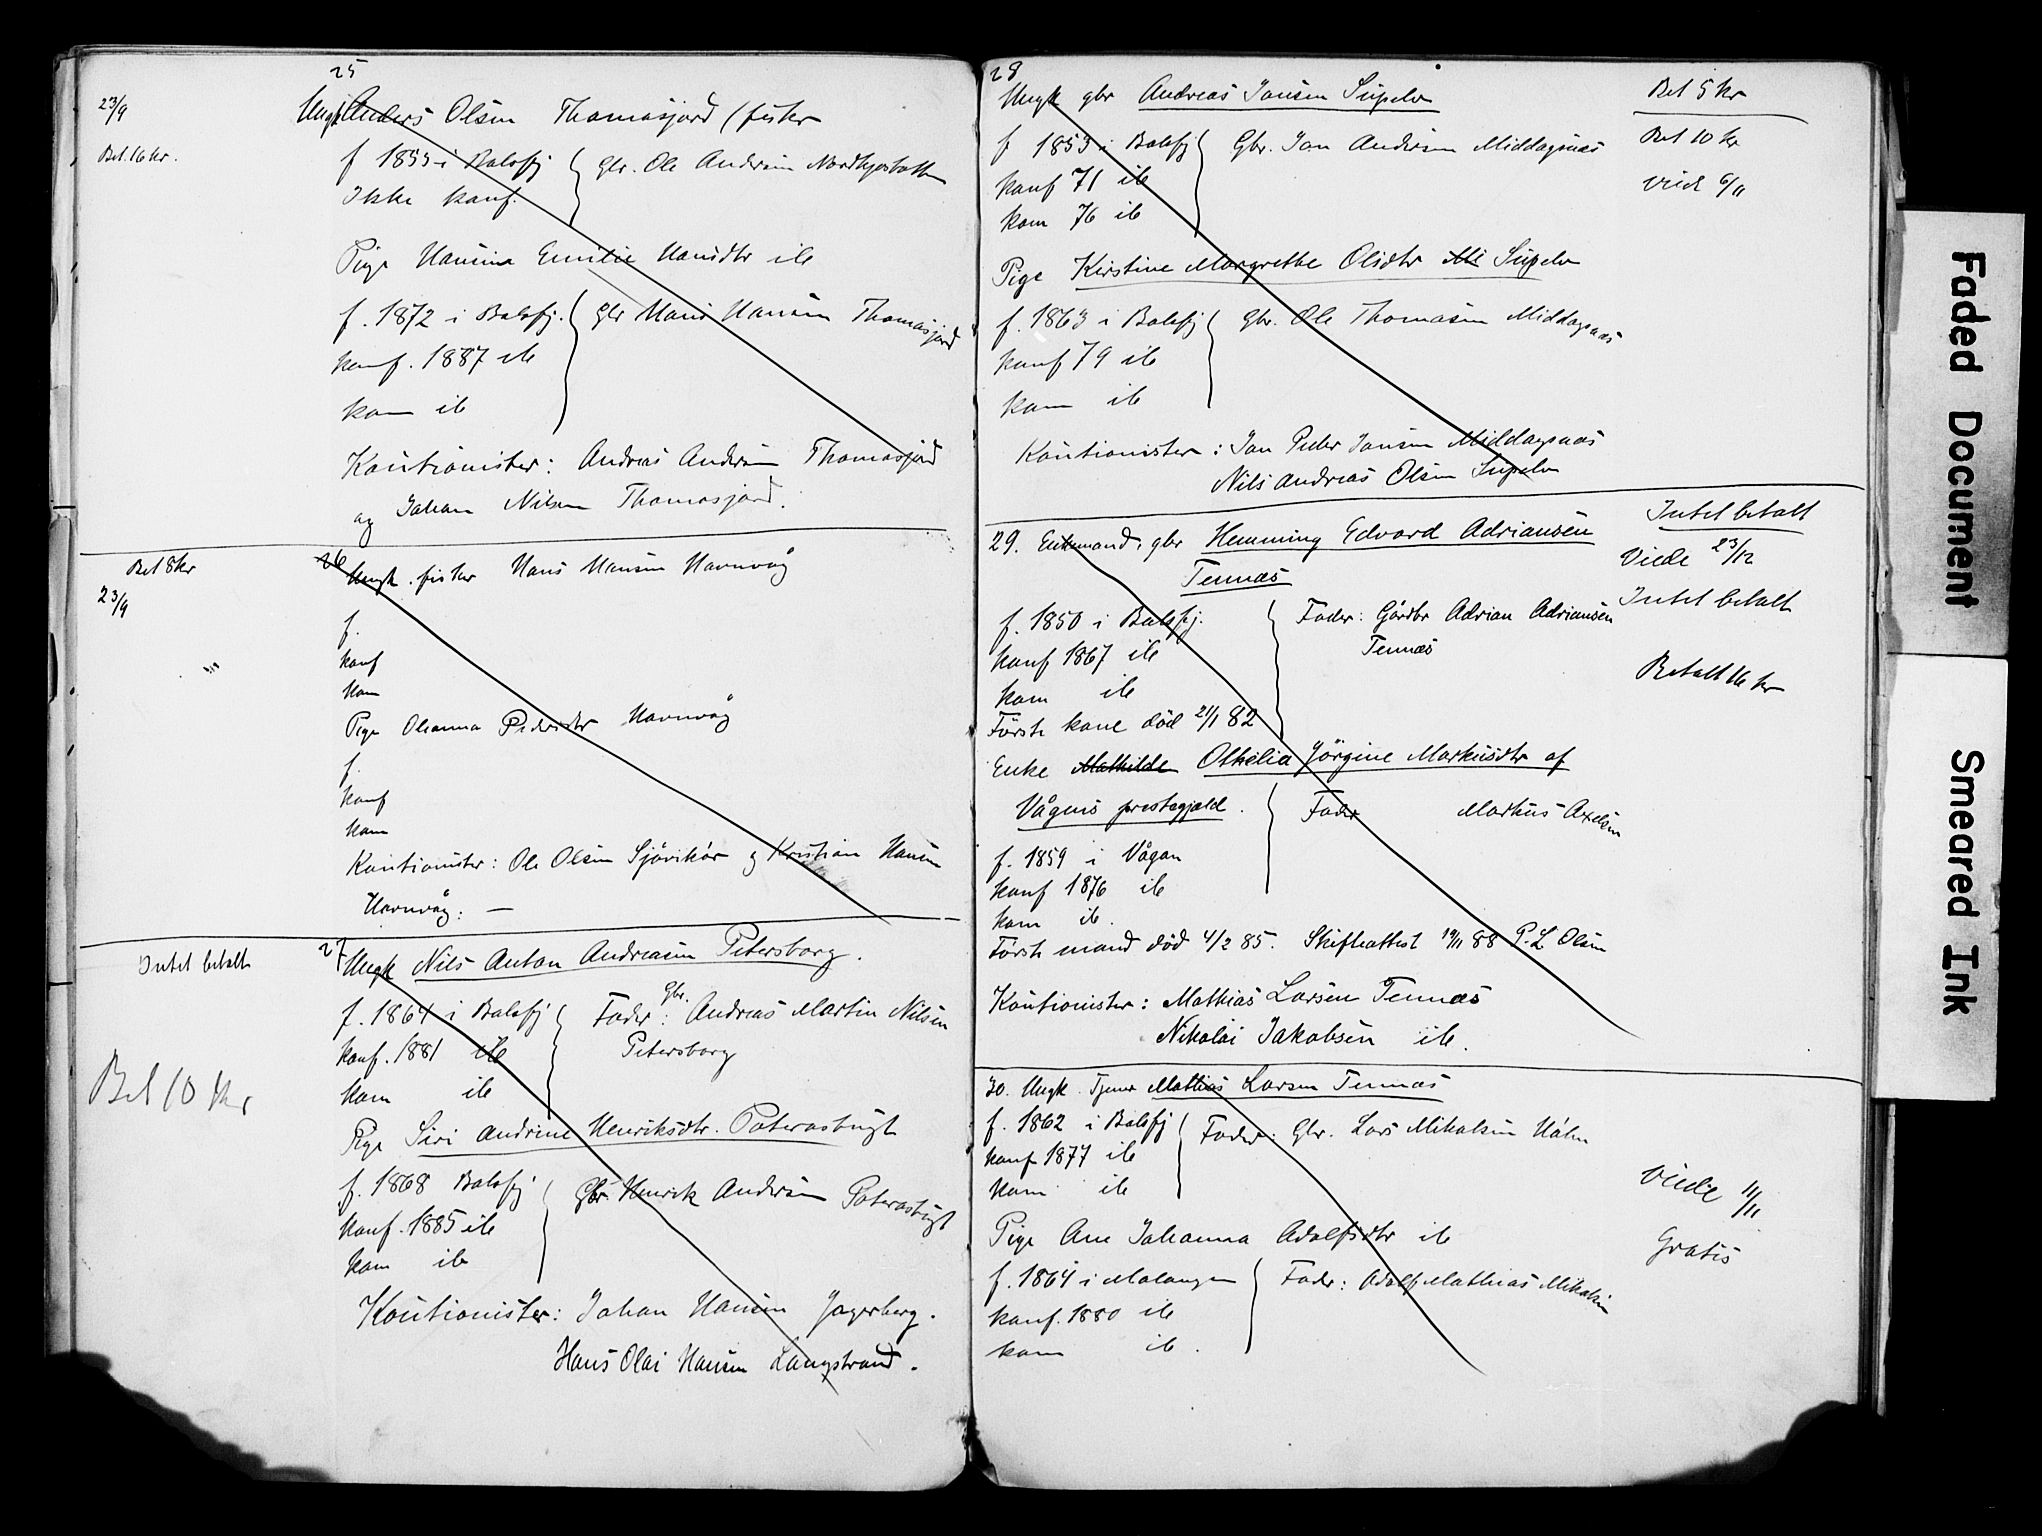 25
23/9
Ungk. Anders Olsen Thomasjord (fisker
Bet. 16 kr.
f 1853 i Balsfj
Gbr. Ole Andersen
Ikke konf.
Pige Hansina Emilie Hansdtr ib
f. 1872 i Balsfj.
Gbr Hans Hansen Thomasjord
konf. 1887 ib
kom ib
Kautionister: Andreas Andersen Thomasjord
og Johan Nilsen Thomasjord.
Bet 8 kr
26
Ungk. fisker Hans Hansen Havnvåg
23/9
f.
konf
kom
Pige Oleanna Pedersdtr Havnvåg
f.
konf
kom
Kautionister: Ole Olsen Sjøvikør og Kristian Hansen
Havnvåg: —
Intet betalt
27
Ungk Nils Anton Andreasen Petersborg.
f. 1864 i Balsfj
Fader: Gbr. Andreas Martin Nilsen
konf. 1881 ib
Petersborg
Bet 10 kr
kom ib
Pige Siri Andrine Henriksdtr. Paterasbugt
f. 1868 Balsfj
Gbr Henrik Andersen Paterasbugt
konf. 1885 ib
kom ib
Kautionister: Johan Hansen Jagerberg.
Hans Olai Hansen Langstrand.
28
Ungk gbr Andreas Jansen Supelv
Bet 5 kr
f 1853 i Balsfj
Gbr. Jan Andersen Middagsnæs
Bet 10 kr
konf 71 ib
Viede 6/11
kom 76 ib
Pige Kirstine Margrethe Olsdtr Mi Supelv
f. 1863 i Balsfj
Gbr. Ole Thomasen Middagsnæs
konf 79 ib
kom ib
Kautionister: Jan Peder Jansen Middagsnæs
Nils Andreas Olsen Supelv
Intet betalt
29. Enkemand, gbr Hemming Edvard Adriansen
Tennæs
Viede 23/12
Intet betalt
f. 1850 i Balsfj.
Fader: Gårdbr Adrian Adriansen
Tennæs
konf 1867 ib
Betalt 16 kr
kom ib
Første kone død 21/1 82
Enke Mathilde Othelia Jörgine Markusdtr af
Vågens prestegjæld.
Fader Markus Axelsen
f. 1859 i Vågan
konf 1876 ib
kom ib.
Første mand død 4/2 85. Skifteattest 19/11 88 P. L. Olsen
Kautionister: Mathias Larsen Tennæs
Nikolai Jakobsen ib.
30. Ungk. Tjener Mathias Larsen Tennæs
f. 1862 i Balsfj
Fader: Gbr. Lars Mikalsen
konf 1877 ib
kom ib
Viede 11/11
Pige Ane Johanna Adolfsdtr ib
Gratis
f. 1864 i Malangen
Fader: Adolf Mathias Mikalsen
konf. 1880 ib
kom ib.
Faded Document
Smeared Ink